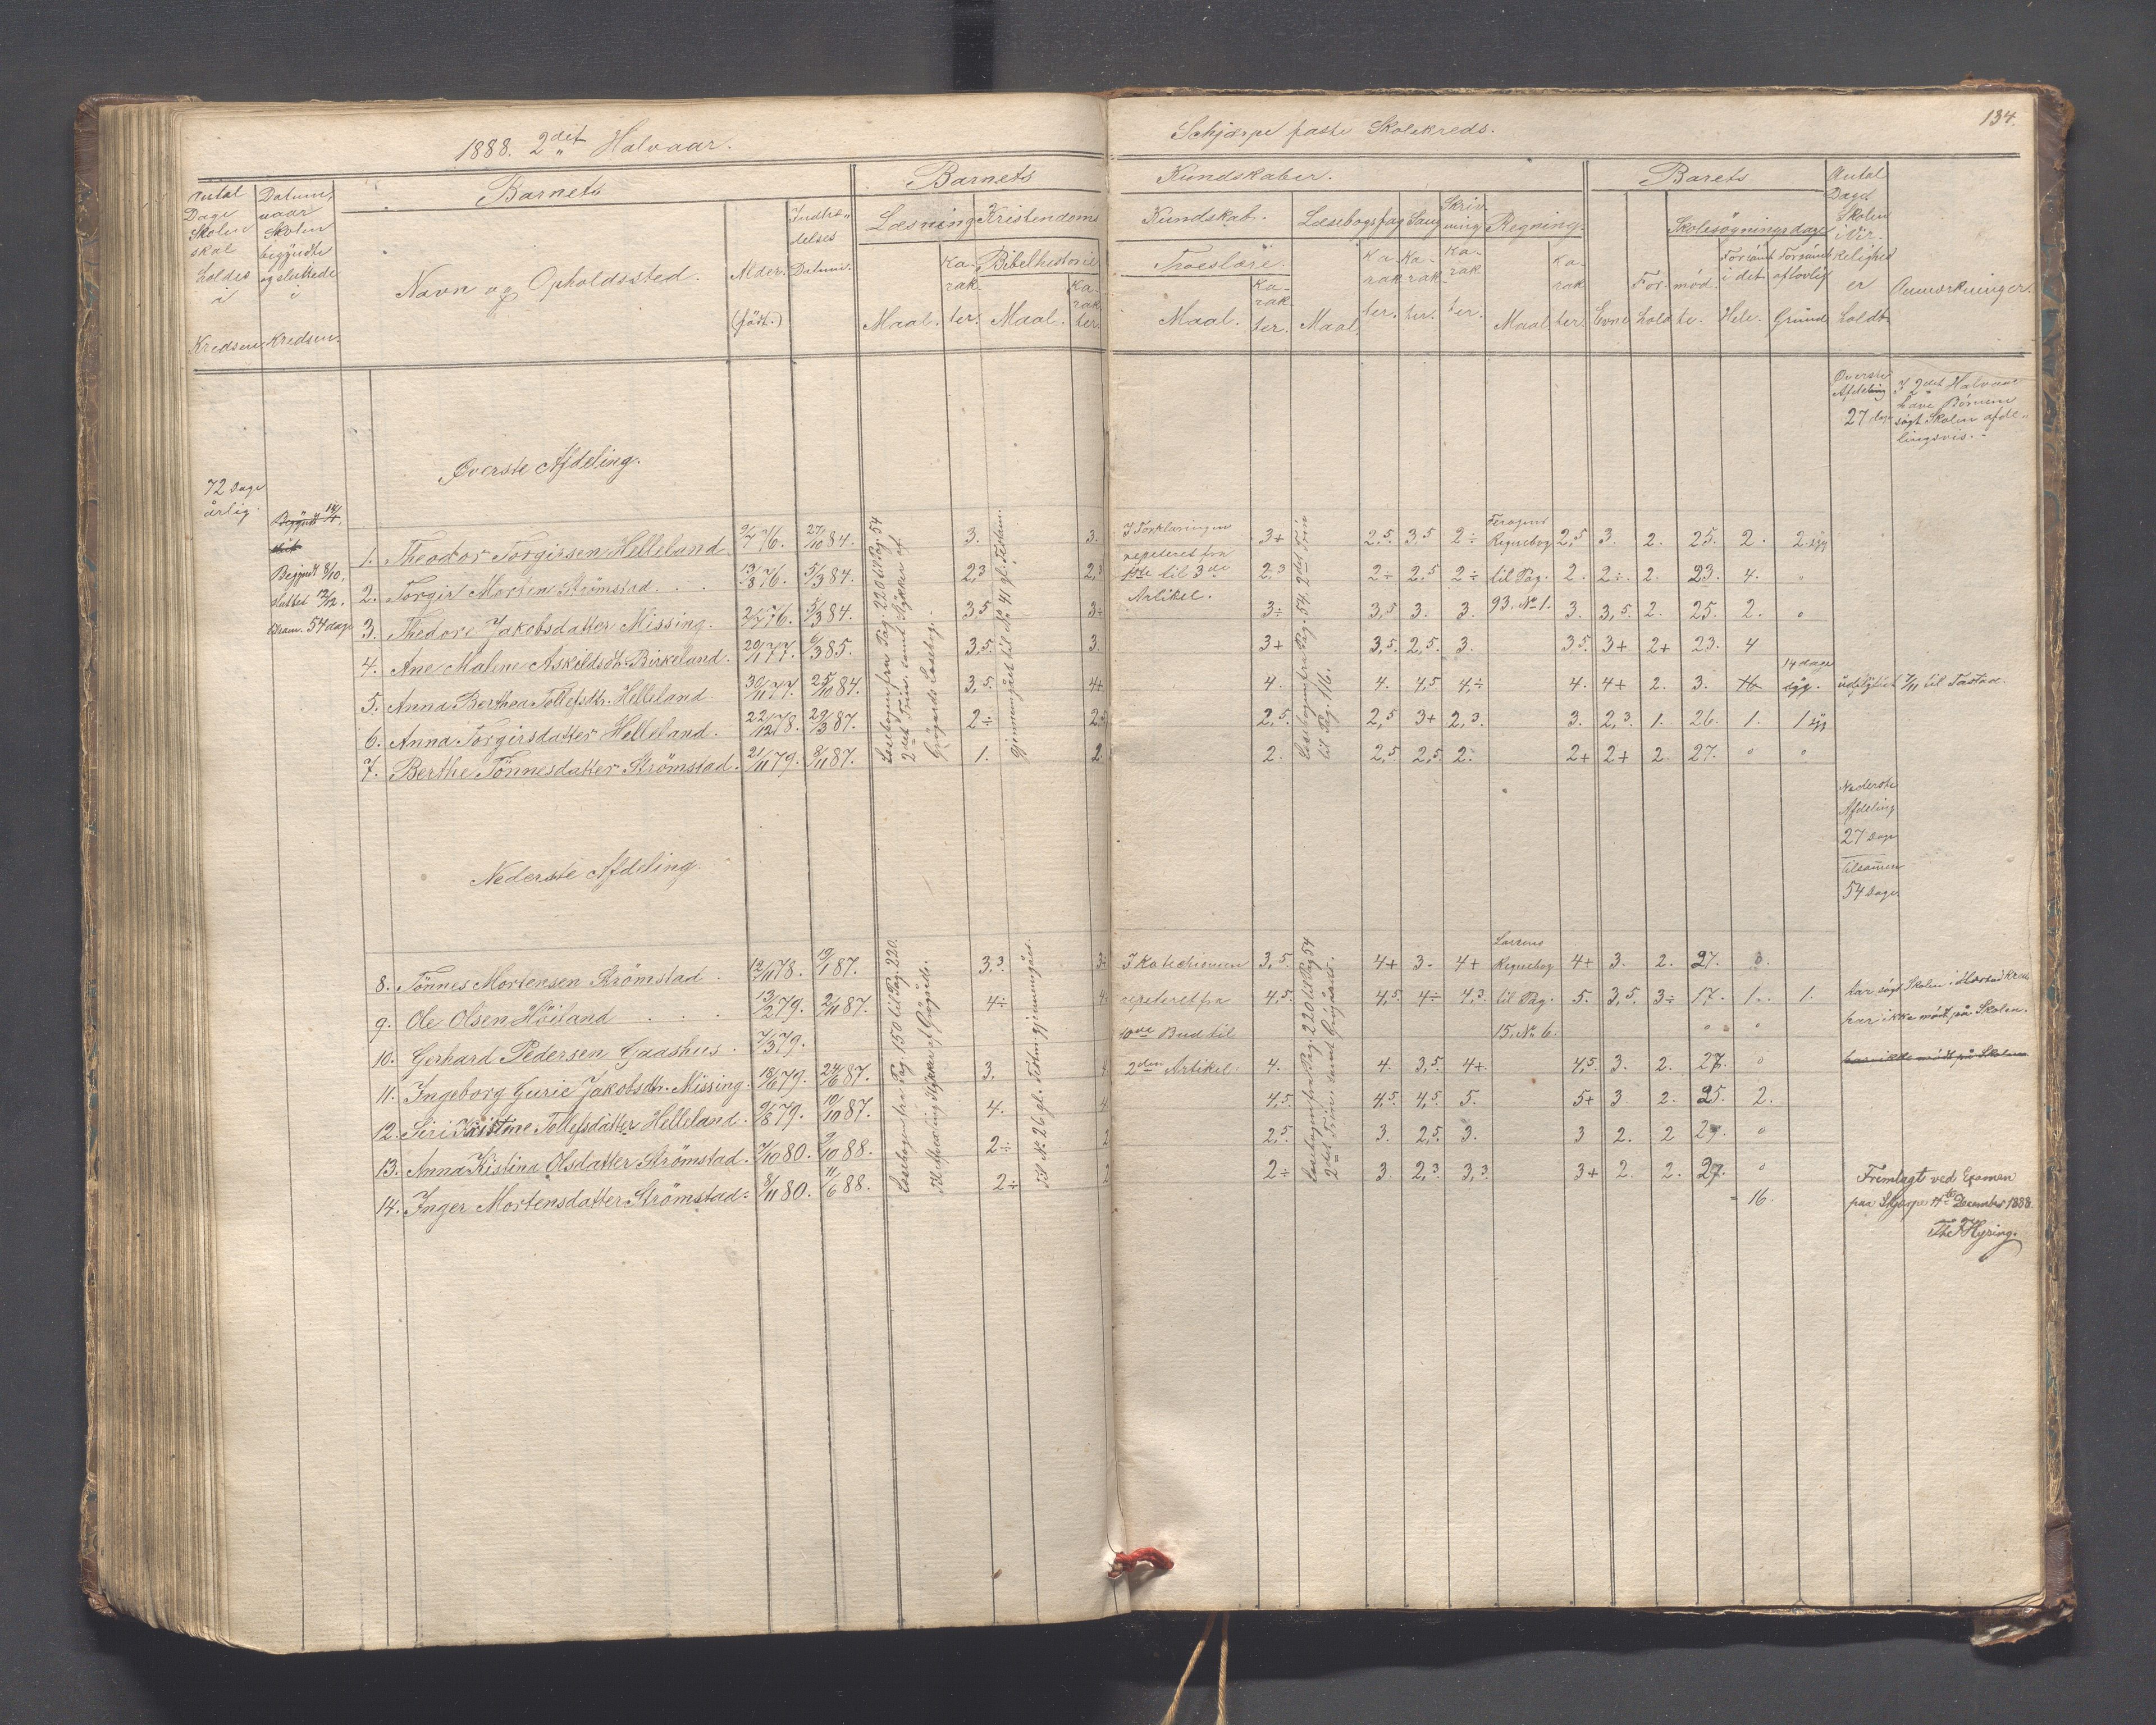 1888. 2det Halvaar.
Schjørpe faste Skolekreds.
134.
Antal Dage Skolen skal holdes i Kredsen.
Datum, naar Skolen begyndte og sluttede i Kredsen.
Barnets
Navn og Opholdssted.
Alder. (født.)
Indtrædelses Datum.
Barnets
Læsning
Maal.
Karakter.
Kristendoms
Bibelhistorie
Maal.
Karakter.
Kundskaber.
Kundskab.
Troeslære.
Maal.
Karakter.
Læsebogsfag
Maal
Karakter.
Sang
Karakter.
Skrivning
Karakter.
Regning.
Maal
Karakter.
Barets
Evne
Forhold
Skolesøgningsdage
mødte.
Forsømt i det Hele.
Forsømt af lovlig Grund
Antal Dage Skolen i Virkelighed er holdt.
Anmærkninger.
Øverste Afdeling 27 dage
I 2det Halvaar
have Børnene
søgt Skolen afde-
lingsvis.
Øverste Afdeling.
72 Dage
årlig.
Begyndt 8/10,
sluttet 12/12.
Exam. 54 dage
Læsebogen fra Pag. 220 til Pag. 54
2det Trin. samt Stykker af
Læsebog.
gjennemgået til No 41 gl. Testam.
I Forklaringen
repeteret fra
1ste til 3die
Artikel.
Læsebogen fra Pag. 54. 2det Trin
til Pag. 116.
Regnebog
til Pag.
93. No 1.
1. Theodor Torgirsen Helleland 9/7 76. 27/10 84. 3. 3. 3+ 2,5. 3,5 2÷ 2,5 3. 2. 25. 2. 2 syg
2. Torgir Morsen Strömstad. 13/8 76. 5/3 84. 2,3 2,3 2,3 2÷ 2,5 2÷ 2. 2÷. 2. 23. 4.
3. Thedore Jakobsdatter Missing. 2/7 76. 5/3 84. 3,5 3÷ 3÷ 3,5 3. 3. 3. 3,5. 2. 25. 2.
4. Ane Malene Askildsdtr. Birkeland. 20/1 77. 6/3 85. 3,5. 3. 3+ 3,5. 2,5. 3. 3,5. 3+ 2+ 23. 4
5. Anna Berthea Tollefsdtr. Helleland 30/11 77. 25/10 84. 3,5. 4+ 4. 4. 4,5 4÷ 4. 4+ 2. 3. 14 dage syg. udflyttet 7/11 til Tastad.
6. Anna Torgirsdatter Helleland. 22/12 78. 29/3 87. 2÷ 2,5 2,5. 2,5 3+ 2,3. 3. 2,3. 1. 26. 1. 1 syg
7. Berthe Tönnesdatter Strömstad. 21/11 79. 8/11 87. 1. 2 2. 2,5 2,5 2. 2+ 2+ 2. 27. 0 0
Nederste
Afdeling
27 Dage
tilsamen
54 Dage
Nederste Afdeling.
Læsebogen fra Pag. 150 til Pag. 220.
Til No. 26 gl. Testm. gjennemgået.
I Katechismen
repeteret fra
10de Bud til
2den Artikel.
Læsebogen fra Pag. 220 til Pag 54
2det Trin.
Regnebog
til Pag.
15. No 6.
8. Tönnes Mortensen Strömstad. 12/11 78. 19/1 87. 3,3 3÷ 3,5. 4+ 3. 4+ 4+ 3. 2. 27. 0.
9. Ole Olsen Höiland 13/2 79. 2/11 87. 4÷ 4. 4,5. 4,5. 4÷ 4,3. 5. 3,5. 3÷ 17. 1. 1. har søgt Skolen i
10. Gerhard Pedersen Gaashus. 7/3 79. har ikke mødt på Skolen.
11. Ingeborg Gurie Jakobsdtr. Missing. 18/6 79. 24/6 87. 3. 4 4. 4. 3,5. 4+. 4,5 3. 2. 27. 0 har ikke mødt på Skolen
12. Siri Kristine Tollefsdatter Helleland. 9/8 79. 19/10 87. 4. 4 4,5. 4,5. 4,5. 5. 5+ 3. 2. 25. 2.
13. Anna Kistina Olsdatter Strömstad. 7/10 80. 9/10 88. 2÷ 2 2,5. 3. 2,5. 3. 3 2. 2 27. 0
14. Inger Mortensdatter Strömstad. 8/11 80. 11/6 88. 2÷ 2 2÷ 3. 2,3 3,3 3+ 2. 2. 27. 0
= 16.
Fremlagt ved Examen
paa Skjørpe 14de December 1888.